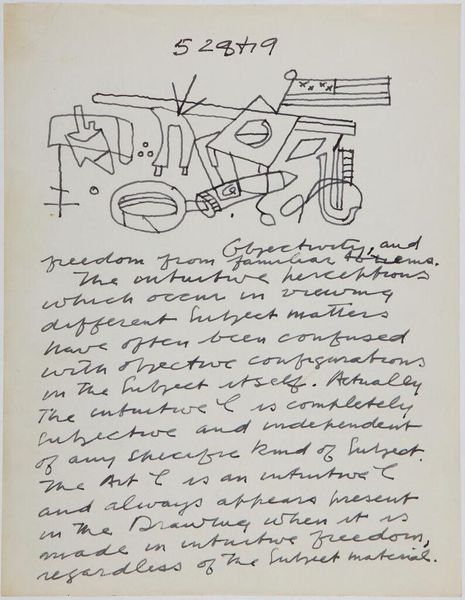 5 28 19
Objectivity, and
freedom from familiar items.
The intuitive perceptions
which occur in viewing
different Subject matters
have often been confused
with objective configurations
in the Subject itself. Actually
The intuitive C is completely
Subjective and independent
of any specific kind of Subject.
The Art C is an intuitive C
and always appears present
in the Drawing when it is
made in intuitive freedom,
regardless of the Subject material.